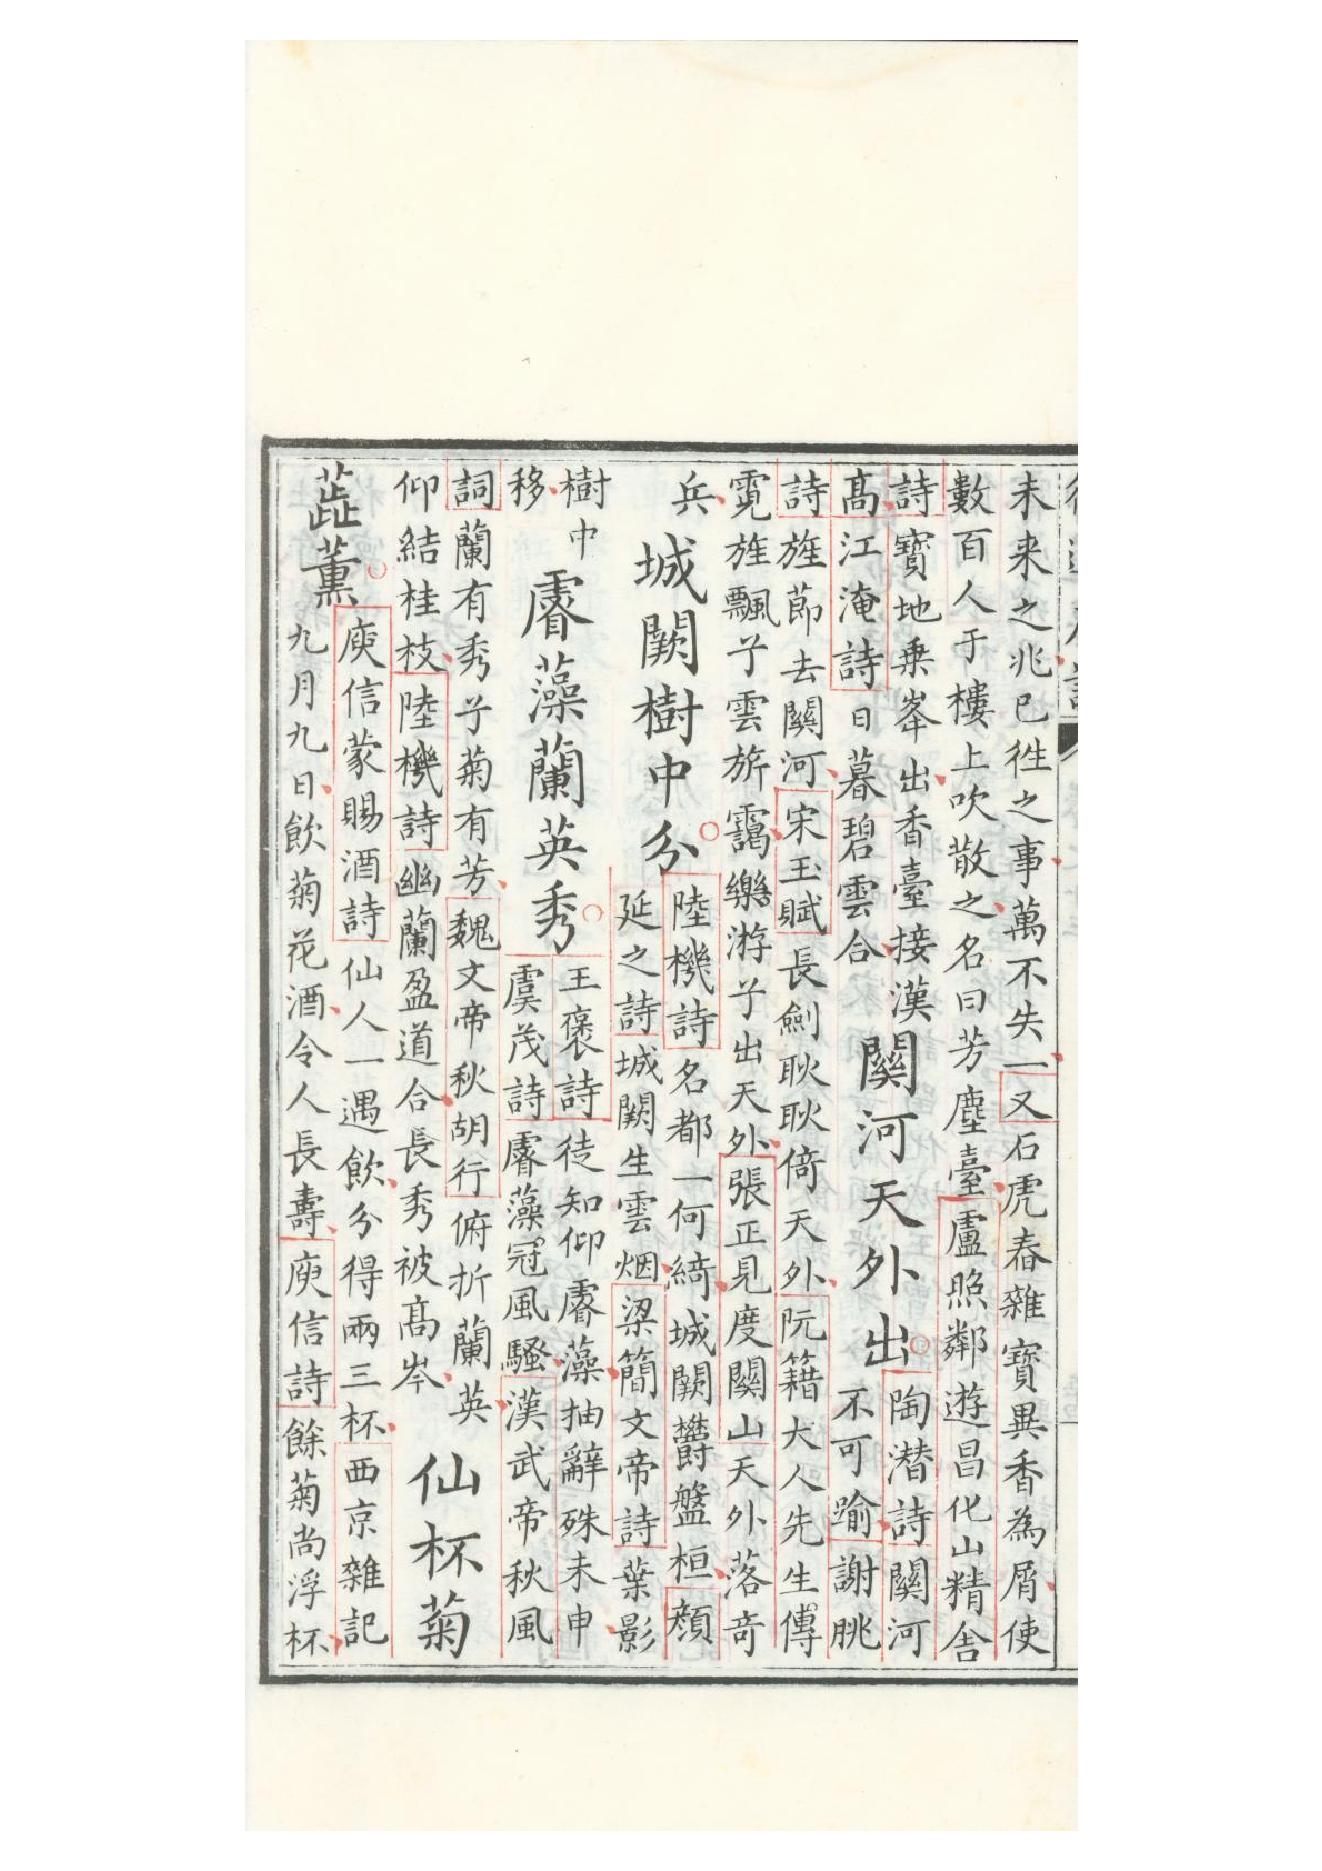 未来之兆已徃之事萬不失一又石虎舂雜寶異香為屑使
數百人于樓上吹散之名曰芳塵臺盧照鄰遊昌化山精舍
詩寶地乗峯出香臺接漢
髙江淹詩日暮碧雲合
關河天外出
陶潜詩關河
不可踰謝朓
詩旌節去關河宋玉賦長劍耿耿倚天外阮籍大人先生傳
霓旌飄兮雲旂靄樂游兮出天外張正見度關山天外落竒
兵
城闕樹中分
陸機詩名都一何綺城闕欝盤桓顏
延之詩城闕生雲烟梁簡文帝詩葉影
樹中
移
睿藻蘭英秀
王褒詩徒知仰睿藻抽辭殊未申
虞茂詩睿藻冠風騷漢武帝秋風
詞蘭有秀兮菊有芳魏文帝秋胡行俯折蘭英
仰結桂枝陸機詩幽蘭盈道合長秀被髙岑
仙杯菊
蕋薰
庾信蒙賜酒詩仙人一遇飲分得兩三杯西京雜記
九月九日飲菊花酒令人長壽庾信詩餘菊尚浮杯